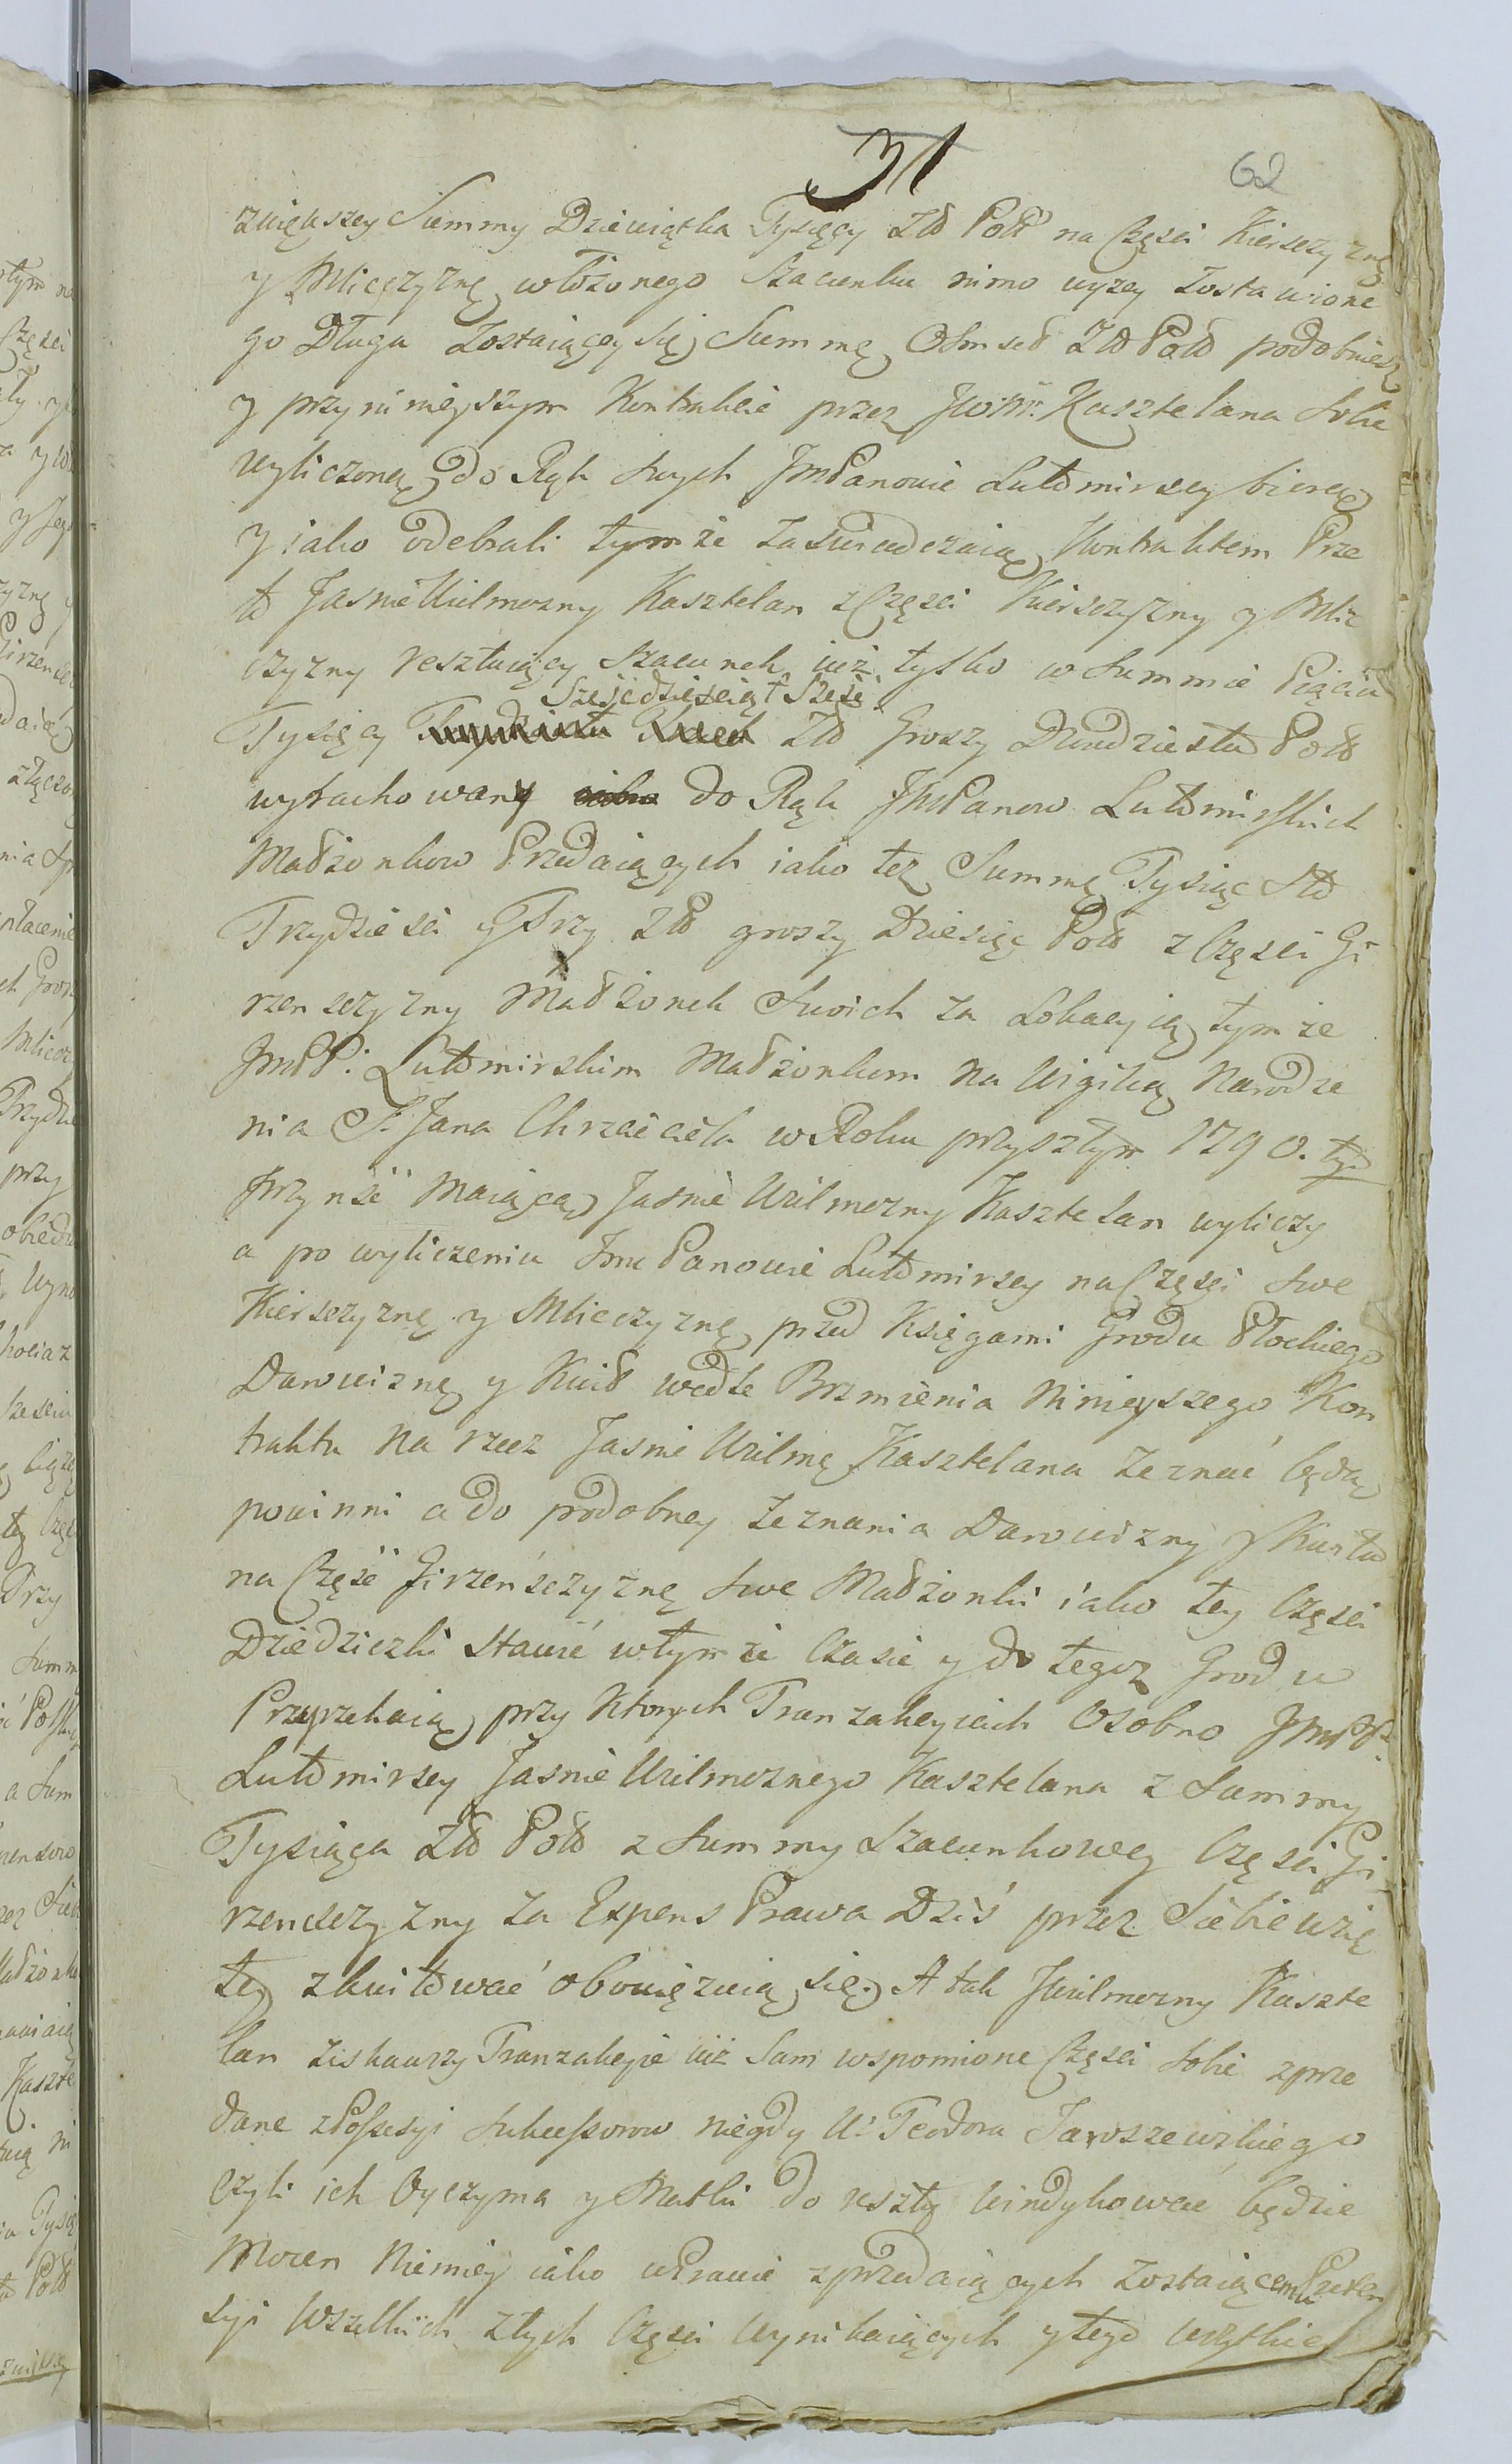 31
62
zwiększey Summy Dziewiątka Tysięcy Zł Polł na Części Kierszczyznę
y Mliczyznę włożonego Szacunku mimo wyzey zostawione
go Długu Zostaiącey się Summę Osmset Zło Polło podobniesz
y przy ninieyszym Kontrakcie przez JWo Kasztelana sobie
wyliczoną do Rąk swych JmPanowie Lutomirscy bierą
y iako odebrali tymże zaswiadczaią Kontraktem Prze
to Jasnie Wielmozny Kasztelan z Części Kierszczyzny y Mli
czyzny resztuiący szacunek iuż tylko w Summie Pięciu
Szescdziesiąt Szesc
Tysięcy Zło Groszy Dwudziestu Polło
wyrachowany do Rąk JmPanow Lutomirskich
Małżonkow Przedaiących iako też Summę Tysiąc Sto
Trzydziesci y Trzy Zło groszy Dziesięc Polło z Części Gi
rzenszczyzny Małżonek Swoich za Lokacyią tymże
JmPP: Lutomirskim Małżonkom na Wigilią Narodze
nia S. Jana Chrzciciela w Roku przyszłym 1790. tyd
przynść Maiącą Jasnie Wielmozny Kasztelan wyliczy
a po wyliczeniu Jmc Panowie Lutomirscy na Części swe
Kierszczyznę y Mliczyznę przed Księgami Grodu Płockiego
Darowiznę y Kwit wedle Brzmienia Ninieyszego Kon
traktu na rzecz Jasnie Wielmę Kasztelana zeznać będą
powinni a do podobney zeznania Darowizny y Kwitu
na Część Girzeńszczyznę swe Małżonki iako tey Części
Dziedziczki stawić w tymże Czasie y do tegoz Grodu
Przyrzekaią przy ktorych Tranzakcyiach Osobno JmPP.
Lutomirscy Jasnie Wielmoznego Kasztelana z Summy
Tysiąca Zło Polło z Summy Szacunkowey Części Gi
rzenszczyzny za Expens Prawa Dziś przez Siebie wzię
tey zkwitować obowięzuią się. A tak JWielmozny Kaszte
lan ziskawszy Tranzakcyie iuż Sam wspomione Części sobie zprze
dane z Possesyi Sukcessorow niegdy Uo Teodora Jaroszewskiego
Czyli ich Oyczyma y Matki do reszty Windykować będzie
Mocen Niemniey iako w Prawie zprzedaiących zostaiącemu Preten
syi Wszelkich z tych Części Wynikaiących y teyd wszytkie